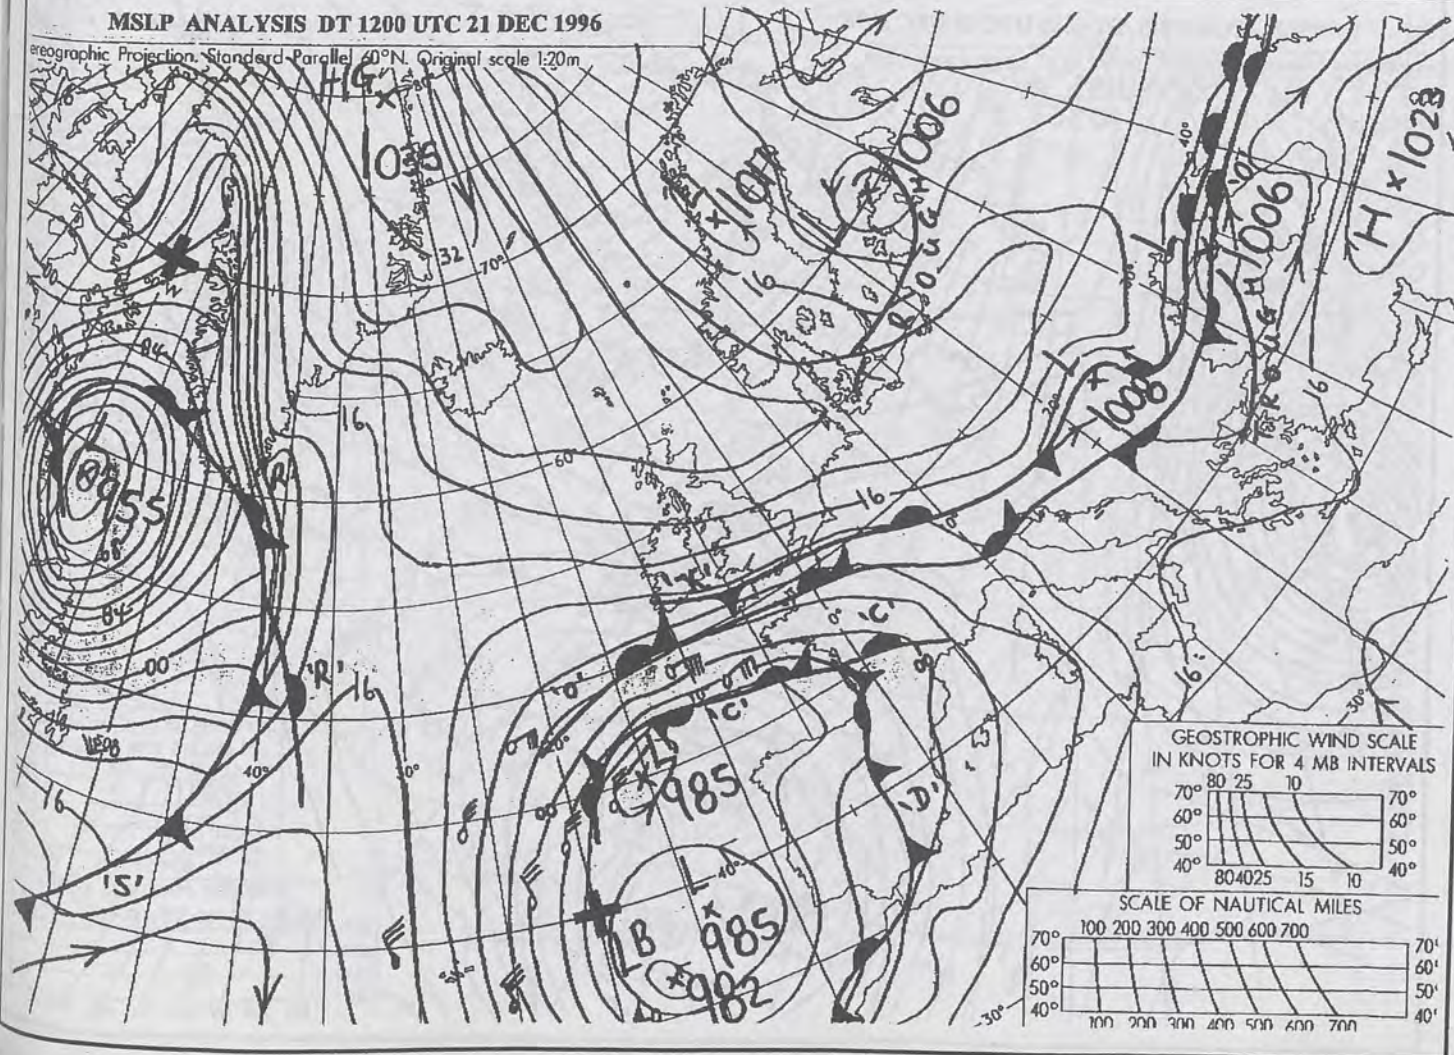 MSLP ANALYSIS DT 1200 UTC 21 DEC 1996
ereographic Projection. Standard Parallel 60°N. Original scale 1:20m
HG
1035
32
70°
16
1006
TROUGH
40°
1006
TROUGH
H
1028
84
L
955
68
84
00
'R'
'R'
16
16
40°
16
'S'
60°
16
1008
16
16
'C'
'C'
'D'
L
985
L
985
40°
L B
982
30°
30°
GEOSTROPHIC WIND SCALE
IN KNOTS FOR 4 MB INTERVALS
80 25 10
70° 70°
60° 60°
50° 50°
40° 40°
804025 15 10
SCALE OF NAUTICAL MILES
100 200 300 400 500 600 700
70° 70°
60° 60°
50° 50°
40° 40°
100 200 300 400 500 600 700